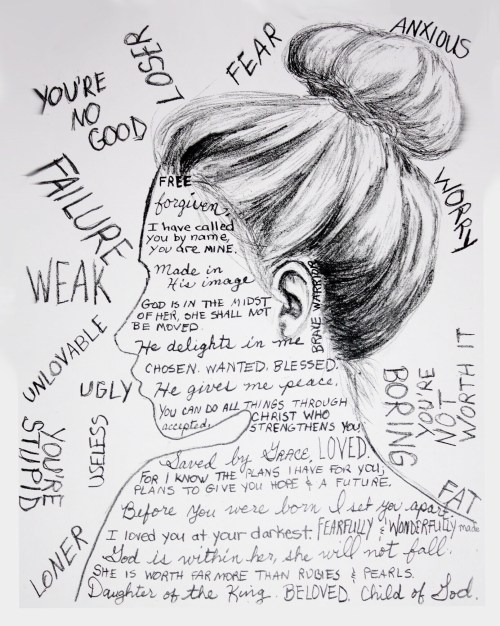 LOSER
FEAR
ANXIOUS
YOU'RE
NO
GOOD
FAILURE
WORRY
WEAK
UNLOVABLE
UGLY
USELESS
YOU'RE
STUPID
LONER
BORING
YOU'RE
NOT
WORTH IT
FAT
FREE
forgiven,
I have called
you by name,
You are MINE.
Made in
His image
GOD IS IN THE MIDST
OF HER, SHE SHALL NOT
BE MOVED.
BRAVE WARRIOR
He delights in me
CHOSEN. WANTED. BLESSED.
He gives me peace.
YOU CAN DO ALL THINGS THROUGH
accepted. CHRIST WHO
STRENGTHENS YOU
Saved by GRACE, LOVED.
FOR I KNOW THE PLANS I HAVE FOR YOU;
PLANS TO GIVE YOU HOPE & A FUTURE.
Before you were born I set you apart.
I loved you at your darkest. FEARFULLY & WONDERFULLY made
God is within her, she will not fall.
SHE IS WORTH FAR MORE THAN RUBIES & PEARLS.
Daughter of the King. BELOVED. Child of God.